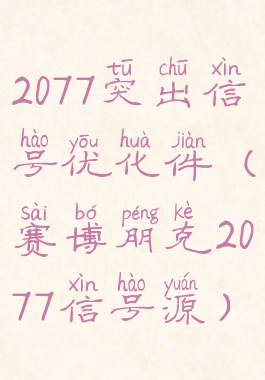 tū chū xìn
2077突出信
hào yōu huà jiàn
号优化件（
sài bó péng kè
赛博朋克20
xìn hào yuán
77信号源）